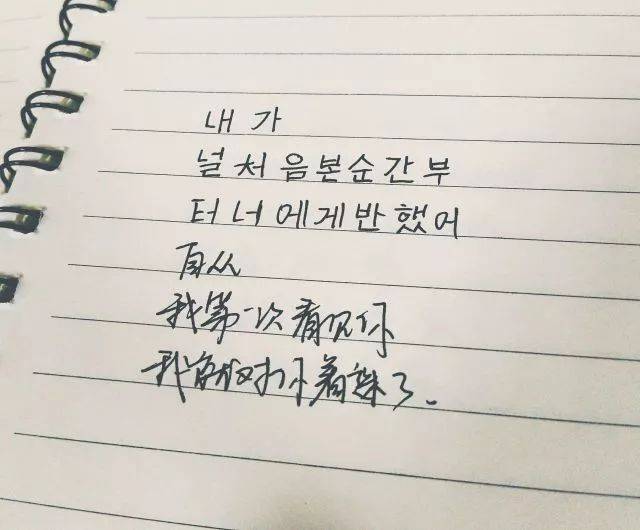 내가
널처음본순간부
터너에게반했어
自从
我第一次看见你
我就对你着迷了.